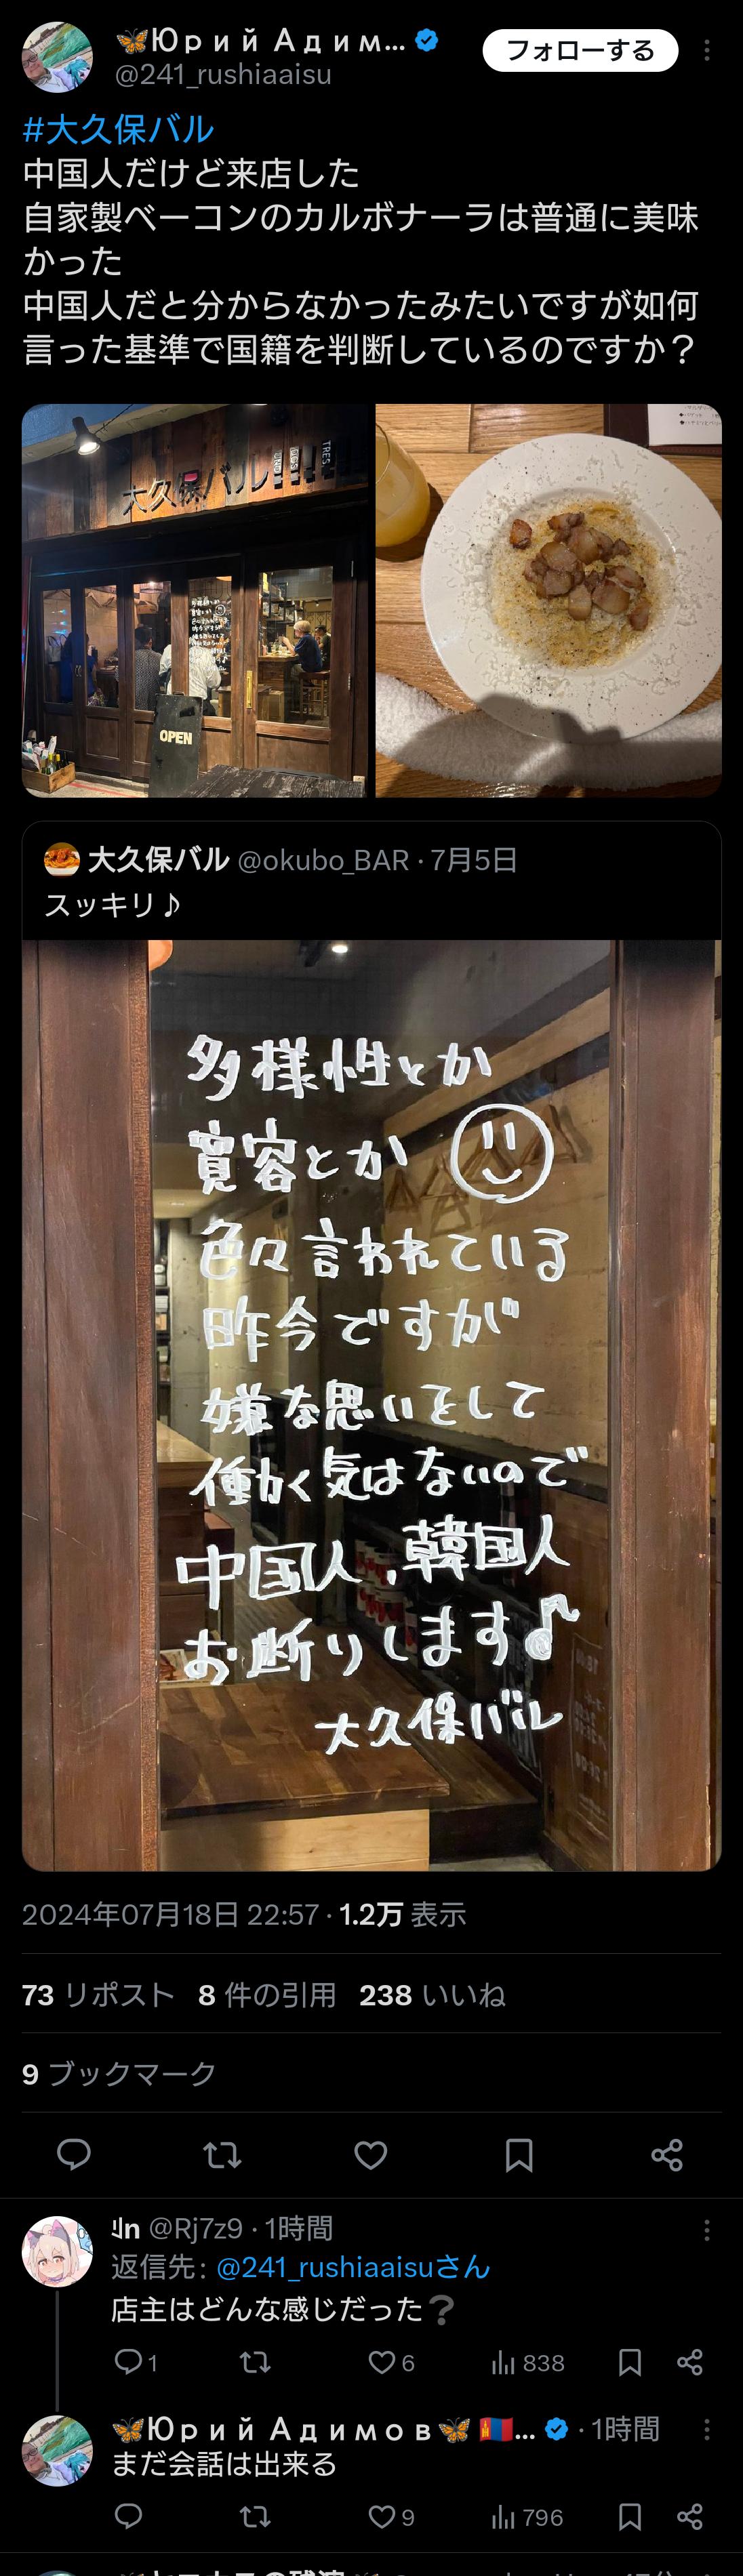 🦋Юрий Адим...
@241_rushiaaisu
フォローする
#大久保バル
中国人だけど来店した
自家製ベーコンのカルボナーラは普通に美味
かった
中国人だと分からなかったみたいですが如何
言った基準で国籍を判断しているのですか？
大久保バル!!!!
TRES
OPEN
大久保バル @okubo_BAR · 7月5日
スッキリ♪
多様性とか
寛容とか
色々言われている
昨今ですが
嫌な思いをして
働く気はないので
中国人、韓国人
お断りします♪
大久保バル
2024年07月18日 22:57 · 1.2万 表示
73 リポスト 8 件の引用 238 いいね
9 ブックマーク
@Rj7z9 · 1時間
返信先: @241_rushiaaisuさん
店主はどんな感じだった❔
1 6 838
🦋Юрий Адимов🦋 🇲🇳... · 1時間
まだ会話は出来る
9 796